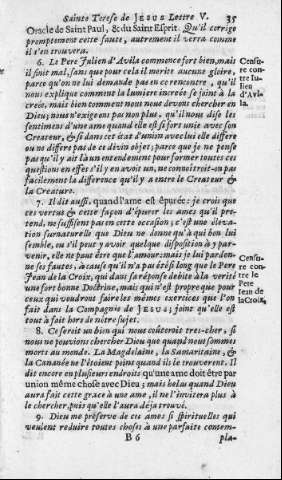 Sainte Terese de JESUS Lettre V. 35
Oracle de Saint Paul, & du Saint Esprit. Qu'il corrige
promptement cette faute, autrement il verra comme
il s'en trouvera.
6. Le Pere Julien d'Avila commence fort bien, mais
il finit mal, sans que pour cela il merite aucune gloire,
parce qu'on ne luy demande pas en ce rencontre, qu'il
nous explique comment la lumiere increée se joint à la
creée, mais bien comment nous nous devons chercher en
Dieu; nous n'exigeons pas non plus, qu'il nous dise les
sentimens d'une ame quand elle est si fort unie avec son
Createur, & si dans cet état d'union avec lui elle differe
ou ne differe pas de ce divin objet; parce que je ne pense
pas qu'il y ait là un entendement pour former toutes ces
questions, en effet s'il y en avoit un, ne connoîtroit-on pas
facilement la difference qu'il y a entre le Createur &
la Creature.
7. Il dit aussi, quand l'ame est épurée: je crois que
ces vertus & cette façon d'épurer les ames qu'il pre-
tend, ne suffisent pas en cette occasion; c'est une éleva-
tion surnaturelle que Dieu ne donne qu'à qui bon lui
semble, ou s'il peut y avoir quelque disposition à y par-
venir, elle ne peut être que l'amour: mais je lui pardon-
ne ses fautes, à cause qu'il n'a pas été si long que le Pere
Jean de la Croix, qui dans sa réponse debite à la verité
une fort bonne Doctrine, mais qui n'est propre que pour
ceux qui voudront faire les mêmes exercices que l'on
fait dans la Compagnie de JESUS; joint qu'elle est
tout à fait hors de nôtre sujet.
8. Ce seroit un bien qui nous coûteroit tres-cher, si
nous ne pouvions chercher Dieu que quand nous sommes
morts au monde. La Magdelaine, la Samaritaine, &
la Cananée ne l'étoient point quand ils le trouverent. Il
dit encore en plusieurs endroits qu'une ame doit être par
union même chose avec Dieu; mais helas quand Dieu
aura fait cette grace à une ame, il ne l'invitera plus à
le chercher, puis qu'elle l'aura déja trouvé.
9. Dieu me préserve de ces ames si spirituelles qui
veulent reduire toutes choses à une parfaite contem-
B 6 pla-
Censu-
re con-
tre Ju-
lien
d'Avi-
la.
Censu-
re con-
tre le
Pere
Jean de
la Croix.